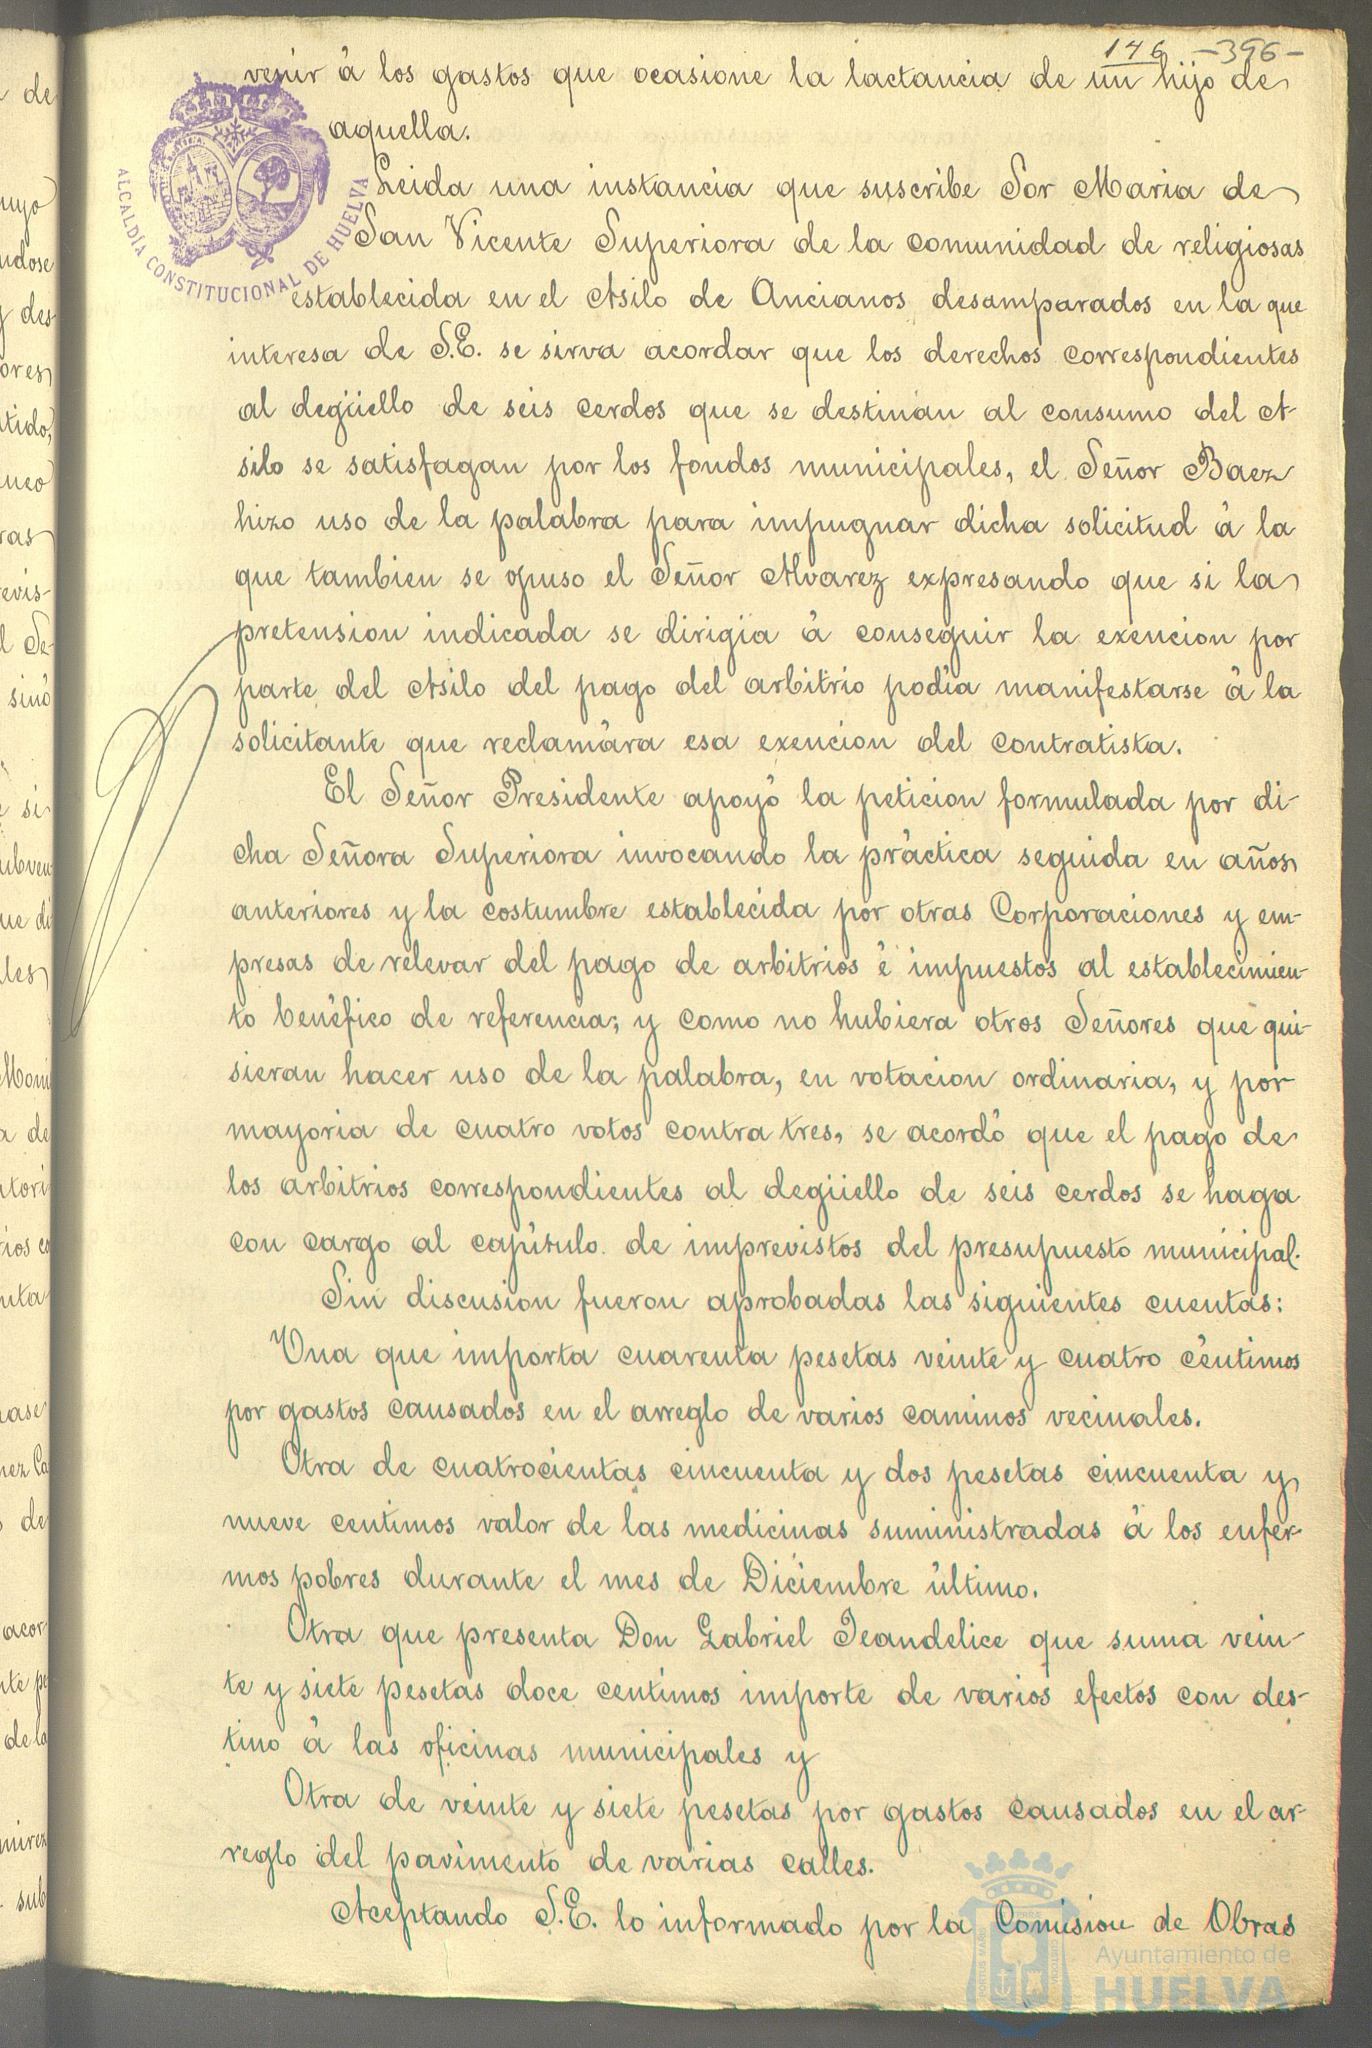 146 -396-
venir á los gastos que ocasione la lactancia de un hijo de
aquella.
Leida una instancia que suscribe Sor Maria de
San Vicente Superiora de la comunidad de religiosas
establecida en el Asilo de Ancianos desamparados en la que
interesa de S.E. se sirva acordar que los derechos correspondientes
al degüello de seis cerdos que se destinan al consumo del A-
silo se satisfagan por los fondos municipales, el Señor Baez
hizo uso de la palabra para impugnar dicha solicitud á la
que tambien se opuso el Señor Alvarez expresando que si la
pretension indicada se dirigia á conseguir la exencion por
parte del Asilo del pago del arbitrio podia manifestarse á la
solicitante que reclamára esa exencion del contratista.
El Señor Presidente apoyó la peticion formulada por di-
cha Señora Superiora invocando la práctica seguida en años
anteriores y la costumbre establecida por otras Corporaciones y em-
presas de relevar del pago de arbitrios é impuestos al establecimien-
to benéfico de referencia; y como no hubiera otros Señores que qui-
sieran hacer uso de la palabra, en votacion ordinaria, y por
mayoria de cuatro votos contra tres, se acordó que el pago de
los arbitrios correspondientes al degüello de seis cerdos se haga
con cargo al capítulo de imprevistos del presupuesto municipal.
Sin discusion fueron aprobadas las siguientes cuentas:
Una que importa cuarenta pesetas veinte y cuatro céntimos
por gastos causados en el arreglo de varios caminos vecinales.
Otra de cuatrocientas cincuenta y dos pesetas cincuenta y
nueve centimos valor de las medicinas suministradas á los enfer-
mos pobres durante el mes de Diciembre último.
Otra que presenta Don Gabriel Jeandelice que suma vein-
te y siete pesetas doce centimos importe de varios efectos con des-
tino á las oficinas municipales y
Otra de veinte y siete pesetas por gastos causados en el ar-
reglo del pavimento de varias calles.
Aceptando S.E. lo informado por la Comision de Obras
ALCALDÍA CONSTITUCIONAL DE HUELVA
Ayuntamiento de
HUELVA